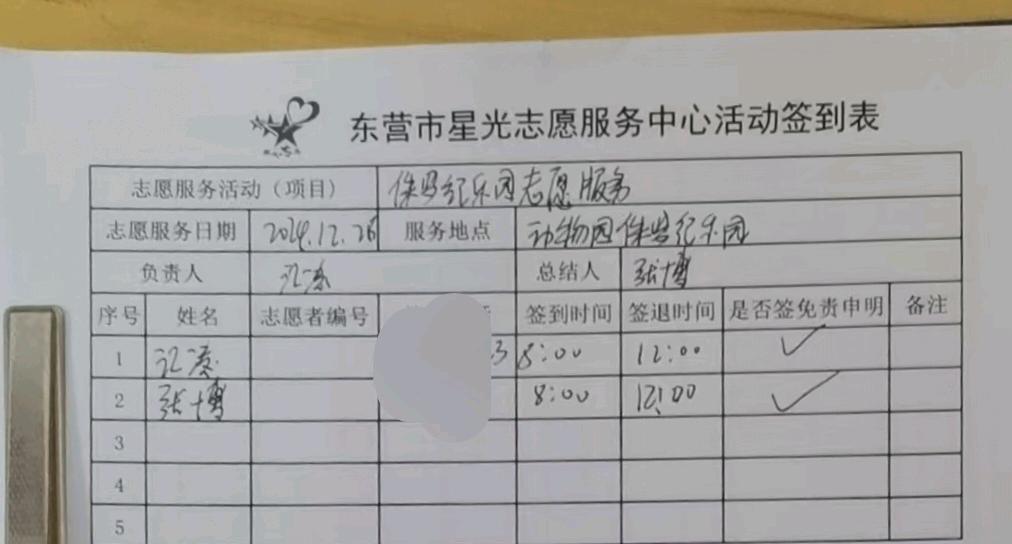 东营市星光志愿服务中心活动签到表
志愿服务活动（项目） 侏罗纪乐园志愿服务
志愿服务日期 2024.12.26 服务地点 动物园侏罗纪乐园
负责人 总结人 张博
序号 姓名 志愿者编号 签到时间 签退时间 是否签免责申明 备注
1 3 8:00 12:00 ✓
2 张博 8:00 12:00 ✓
3
4
5